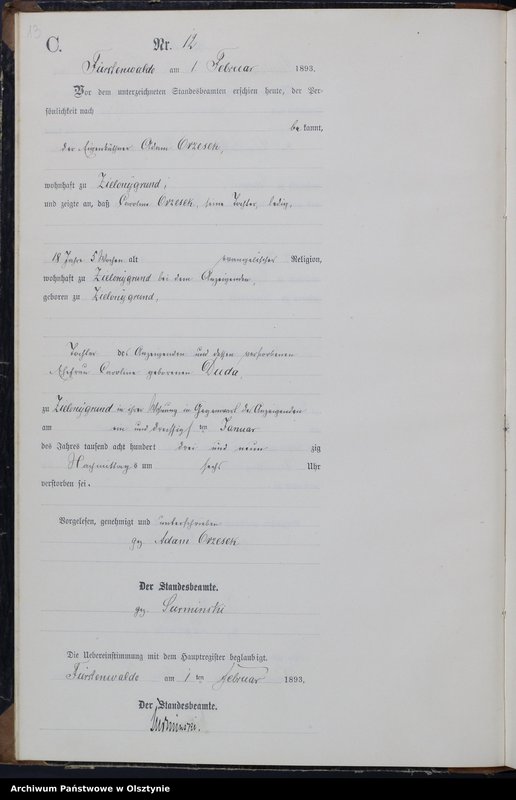 13
C.
Nr. 12
Fürstenwalde am 1 Februar 1893.
Vor dem unterzeichneten Standesbeamten erschien heute, der Per-
sönlichkeit nach
be kannt,
der Eigenkäthner Adam Orzesek,
wohnhaft zu Zielonygrund,
und zeigte an, daß Caroline Orzesek, seine Tochter, ledig,
18 Jahre 5 Wochen alt evangelischer Religion,
wohnhaft zu Zielonygrund bei dem Anzeigenden,
geboren zu Zielonygrund,
Tochter des Anzeigenden und dessen verstorbenen
Ehefrau Caroline geborenen Duda,
zu Zielonygrund in ihrer Wohnung in Gegenwart des Anzeigenden
am ein und dreissigsten Januar
des Jahres tausend acht hundert drei und neun zig
Nachmittags um sechs Uhr
verstorben sei.
Vorgelesen, genehmigt und unterschrieben
gez. Adam Orzesek
Der Standesbeamte.
gez. Surminski
Die Uebereinstimmung mit dem Hauptregister beglaubigt.
Fürstenwalde am 1 ten Februar 1893,
Der Standesbeamte.
Surminski.
Archiwum Państwowe w Olsztynie